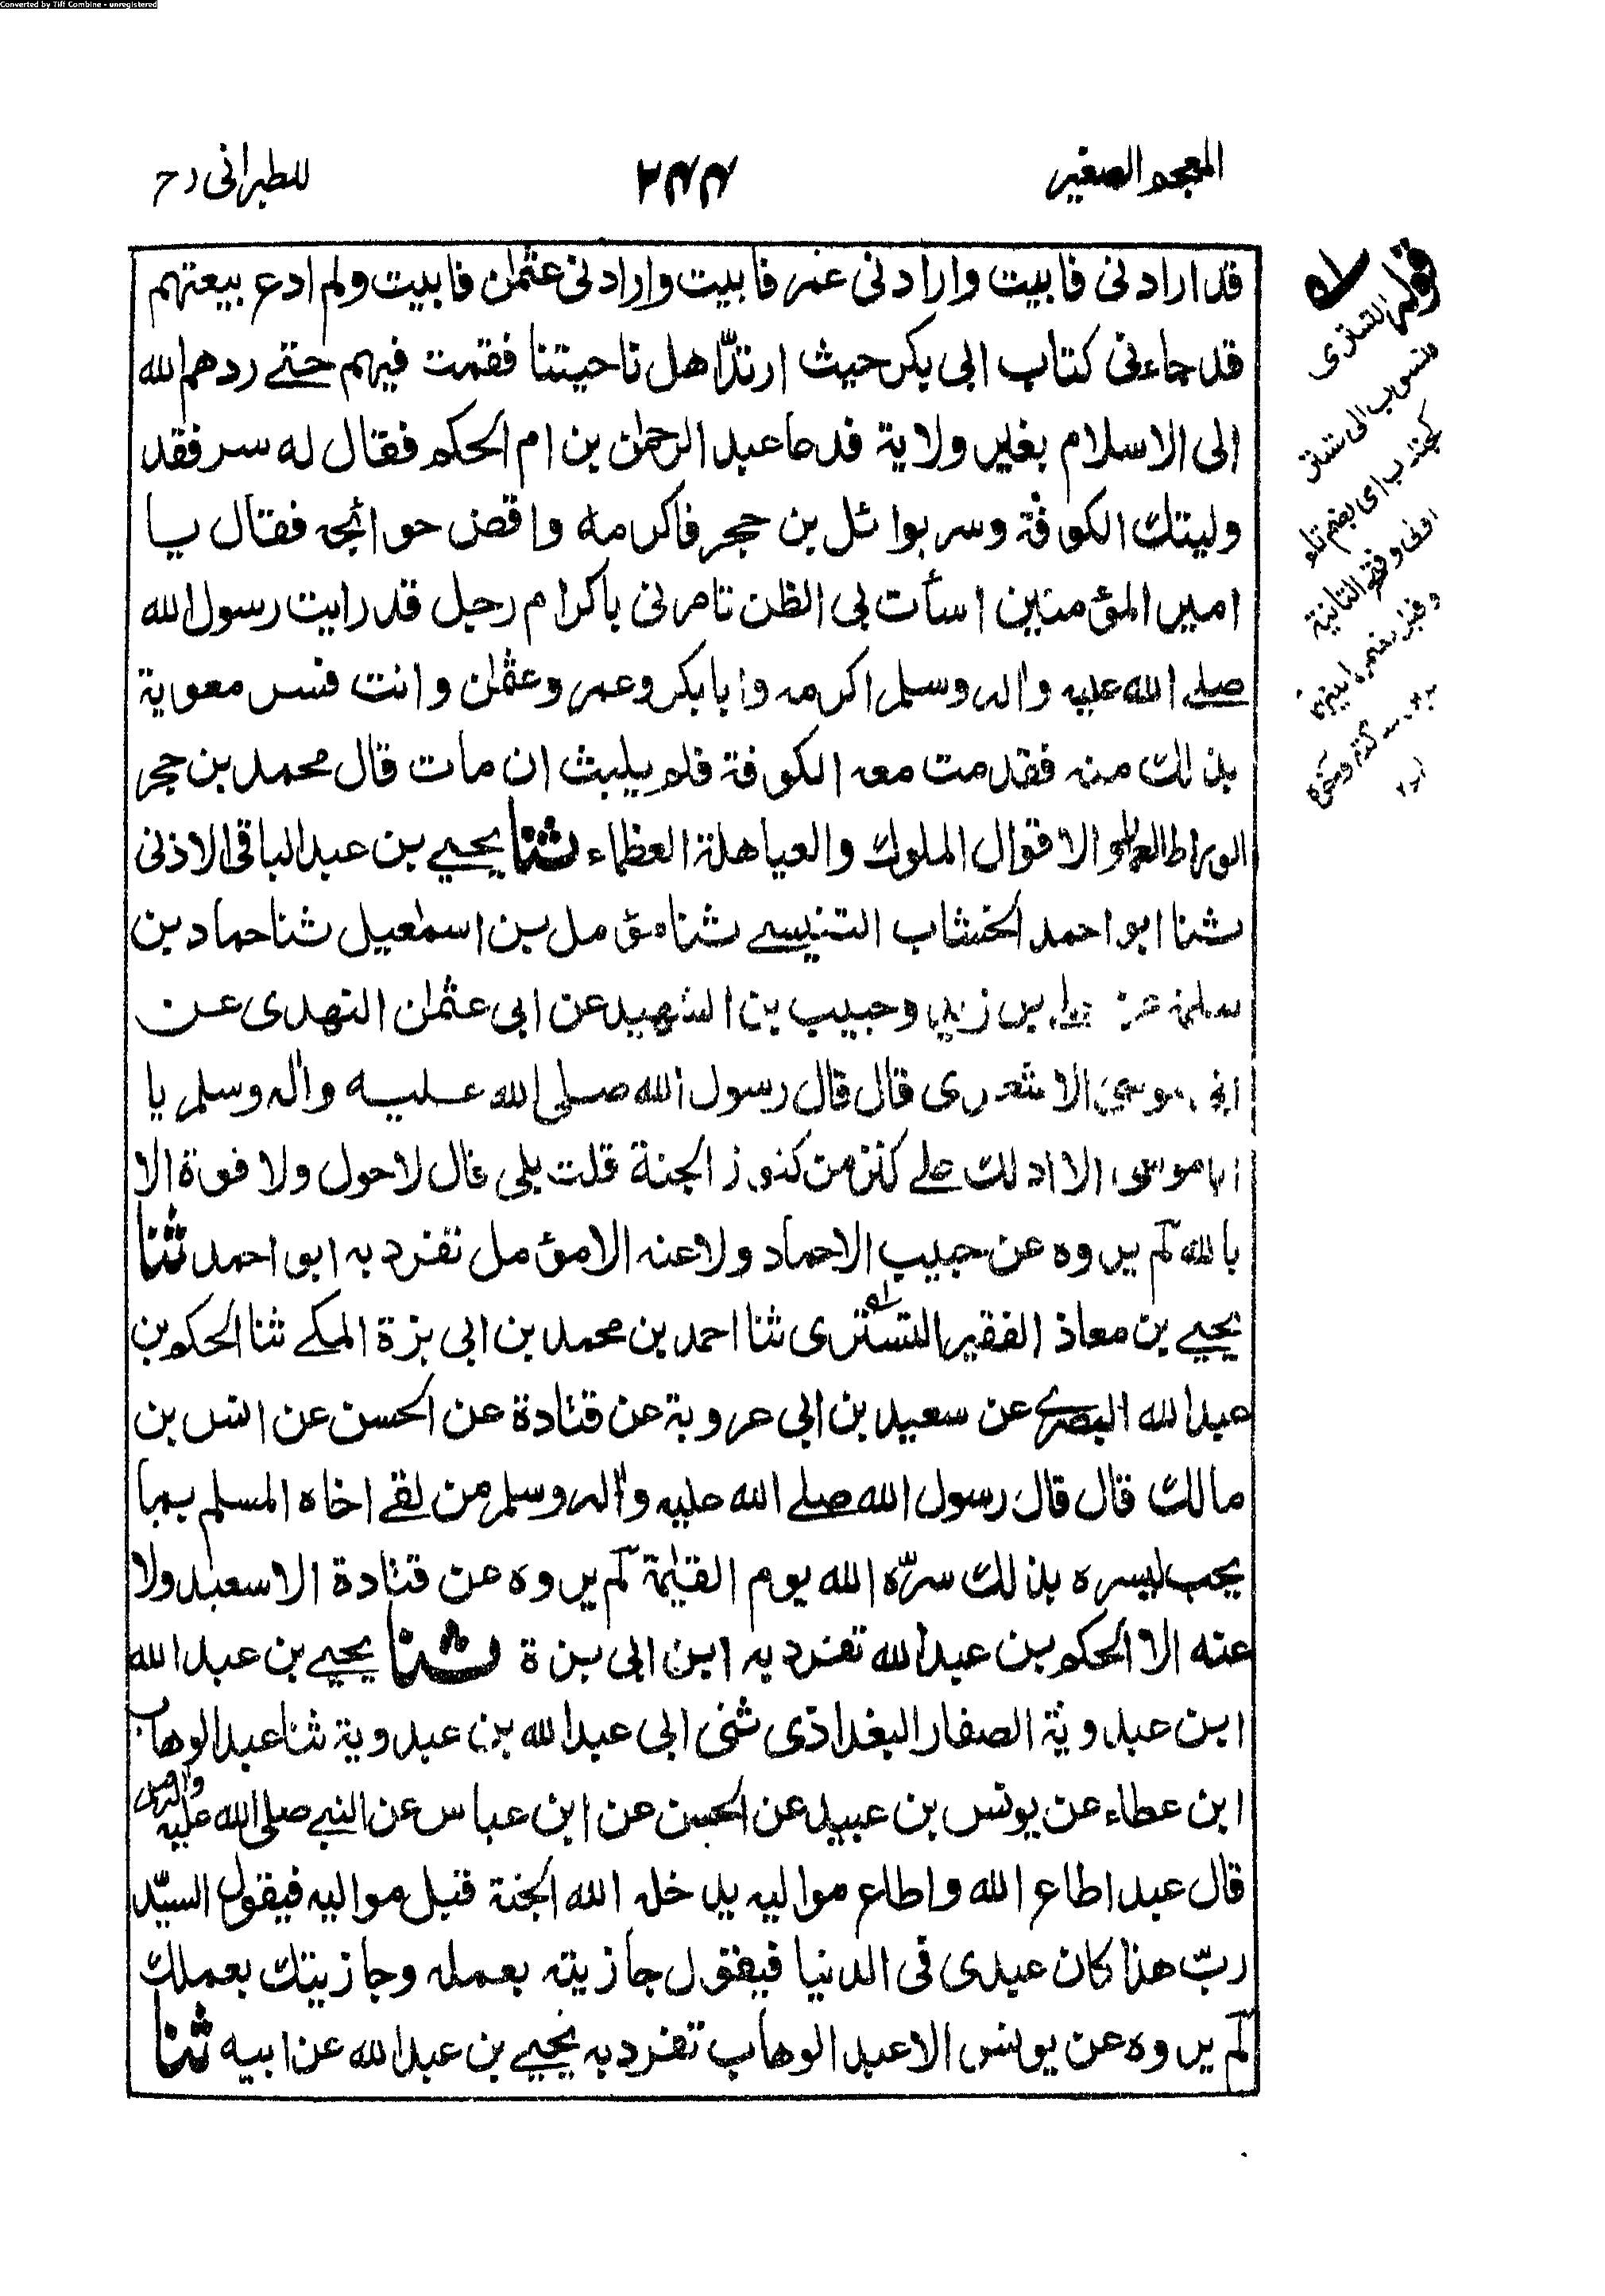 Converted by Tiff Combine - unregistered
المعجم الصغير ٢٤٤ للطبرانى رح
قد ارادنى فابيت وارادنى عمر فابيت وارادنى عثمٰن فابيت ولم ادع بيعتهم
قد جاءنى كتاب ابى بكر حيث ارتدّ اهل ناحيتنا فقمت فيهم حتے ردهم الله
الى الاسلام بغير ولاية فدعا عبد الرحمٰن بن ام الحكم فقال له سر فقد
وليتك الكوفة وسر بوائل بن حجر فاكرمه واقض حوائجه فقال يا
امير المؤمنين اسأت بى الظن تامرنى باكرام رجل قد رايت رسول الله
صلے الله عليه واله وسلم اكرمه وابا بكر وعمر وعثمٰن وانت فسر معوية
بذلك منه فقدمت معه الكوفة فلم يلبث ان مات قال محمد بن حجر
الوراط والاقوال الملوك والعياهلة العظماء ثنا يحيے بن عبد الباقى الاذنى
ثنا ابو احمد الخشاب التنيسے ثنا مؤمل بن اسمٰعيل ثنا حماد بن
سلمة عن بن زيد وحبيب بن الشهيد عن ابى عثمٰن النهدى عن
ابى موسى الاشعرى قال قال رسول الله صلى الله عليه واٰله وسلم يا
ابا موسى الا ادلك علے كنز من كنوز الجنة قلت بلى قال لا حول ولا قوة الا
بالله لم يروه عن حبيب الا حماد ولا عنه الا مؤمل تفرد به ابو احمد ثنا
يحيے بن معاذ الفقير التستری ثنا احمد بن محمد بن ابى بزة المكے ثنا الحكم بن
عبد الله البصرے عن سعيد بن ابى عروبة عن قتادة عن الحسن عن انس بن
مالك قال قال رسول الله صلے الله عليه واٰله وسلم من لقے اخاه المسلم بما
يحب ليسره بذلك سرّه الله يوم القيٰمة لم يروه عن قتادة الا سعيد ولا
عنه الا الحكم بن عبد الله تفرد به ابن ابى بزة ثنا يحيے بن عبد الله
ابن عبدوية الصفار البغدادى ثنى ابى عبد الله بن عبدوية ثنا عبد الوهاب
ابن عطاء عن يونس بن عبيد عن الحسن عن ابن عباس عن النبے صلى الله عليه واله وسلم
قال عبد اطاع الله واطاع مواليه يدخله الله الجنة قبل مواليه فيقول السيّد
ربّ هذا كان عبدى فى الدنيا فيقول جازيته بعمله وجازيتك بعملك
لم يروه عن يونس الا عبد الوهاب تفرد به يحيے بن عبد الله عن ابيه ثنا
قوله التستری
منسوب الى تستر
كجندب اى بضم تاء
اولى وفتح الثانية